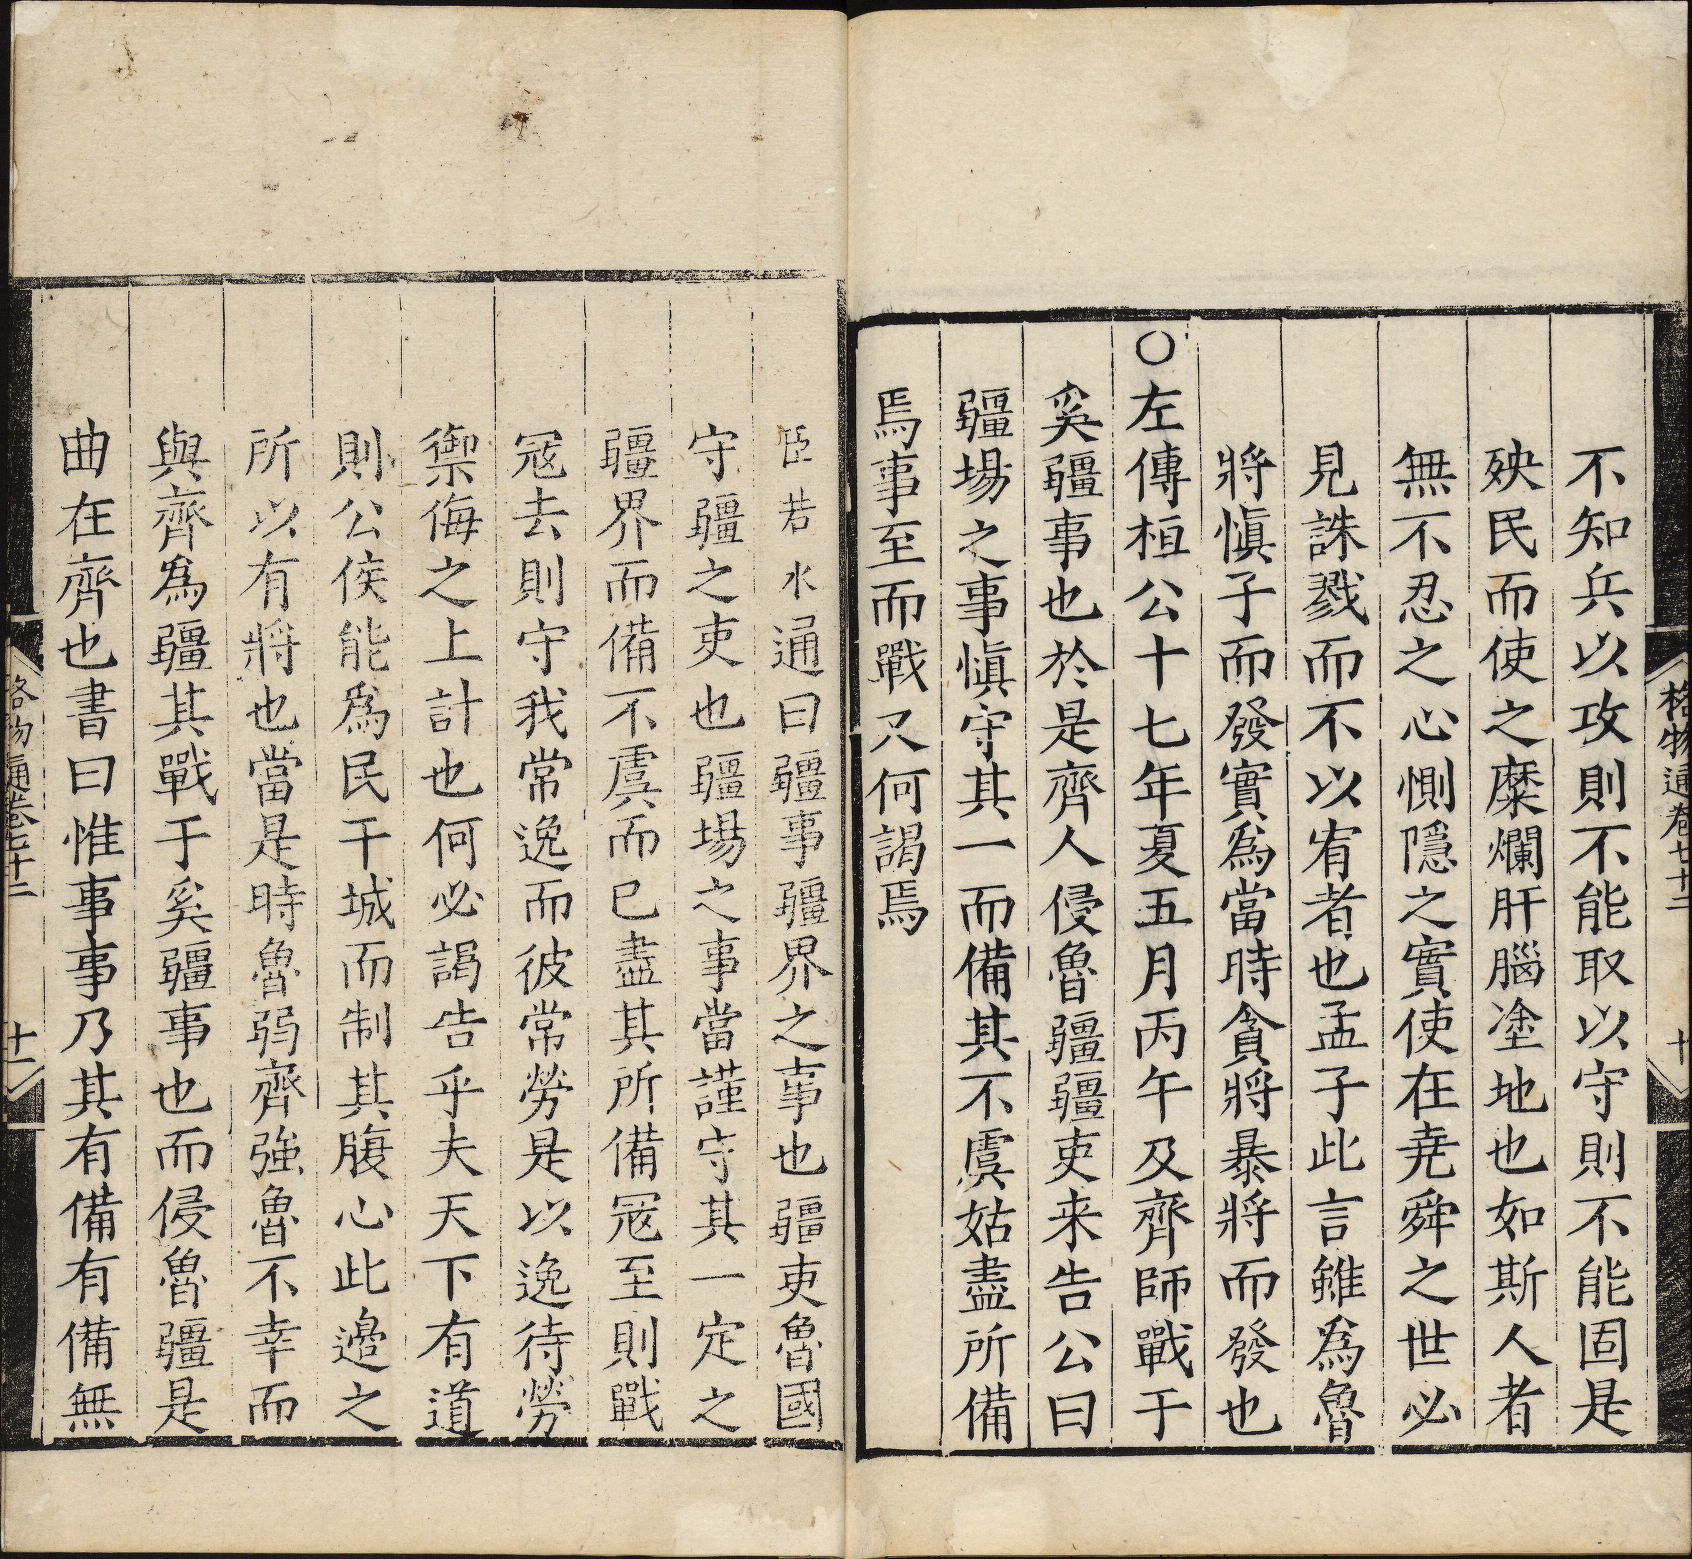 格物通卷七十二
十
不知兵以攻則不能取以守則不能固是
殃民而使之糜爛肝腦塗地也如斯人者
無不忍之心惻隱之實使在堯舜之世必
見誅戮而不以宥者也孟子此言雖為魯
將愼子而發實為當時貪將暴將而發也
○左傳桓公十七年夏五月丙午及齊師戰于
奚疆事也於是齊人侵魯疆疆吏来告公曰
疆場之事愼守其一而備其不虞姑盡所備
焉事至而戰又何謁焉
臣若水通曰疆事疆界之事也疆吏魯國
守疆之吏也疆場之事當謹守其一定之
疆界而備不虞而已盡其所備冦至則戰
冦去則守我常逸而彼常勞是以逸待勞
禦侮之上計也何必謁告乎夫天下有道
則公侯能為民干城而制其腹心此邊之
所以有將也當是時魯弱齊強魯不幸而
與齊為疆其戰于奚疆事也而侵魯疆是
曲在齊也書曰惟事事乃其有備有備無
格物通卷七十二
十一